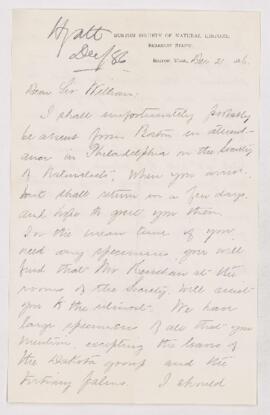 Hyatt
Dec/86
BOSTON SOCIETY OF NATURAL HISTORY,
BERKELEY STREET.
BOSTON, MASS., Dec 21 1886.
Dear Sir William:
I shall unfortunately probably
be absent from Boston in attend-
ance in Philadelphia on the Society
of Naturalists. When you arrive
but shall return in a few days
and hope to greet you then.
In the mean time if you
need any specimens you will
find that Mr at the
rooms of the Society, will assist
you to the utmost. We have
large specimens of all that you
mention, excepting the leaves of
the Dakota group and the
tertiary palms. I should